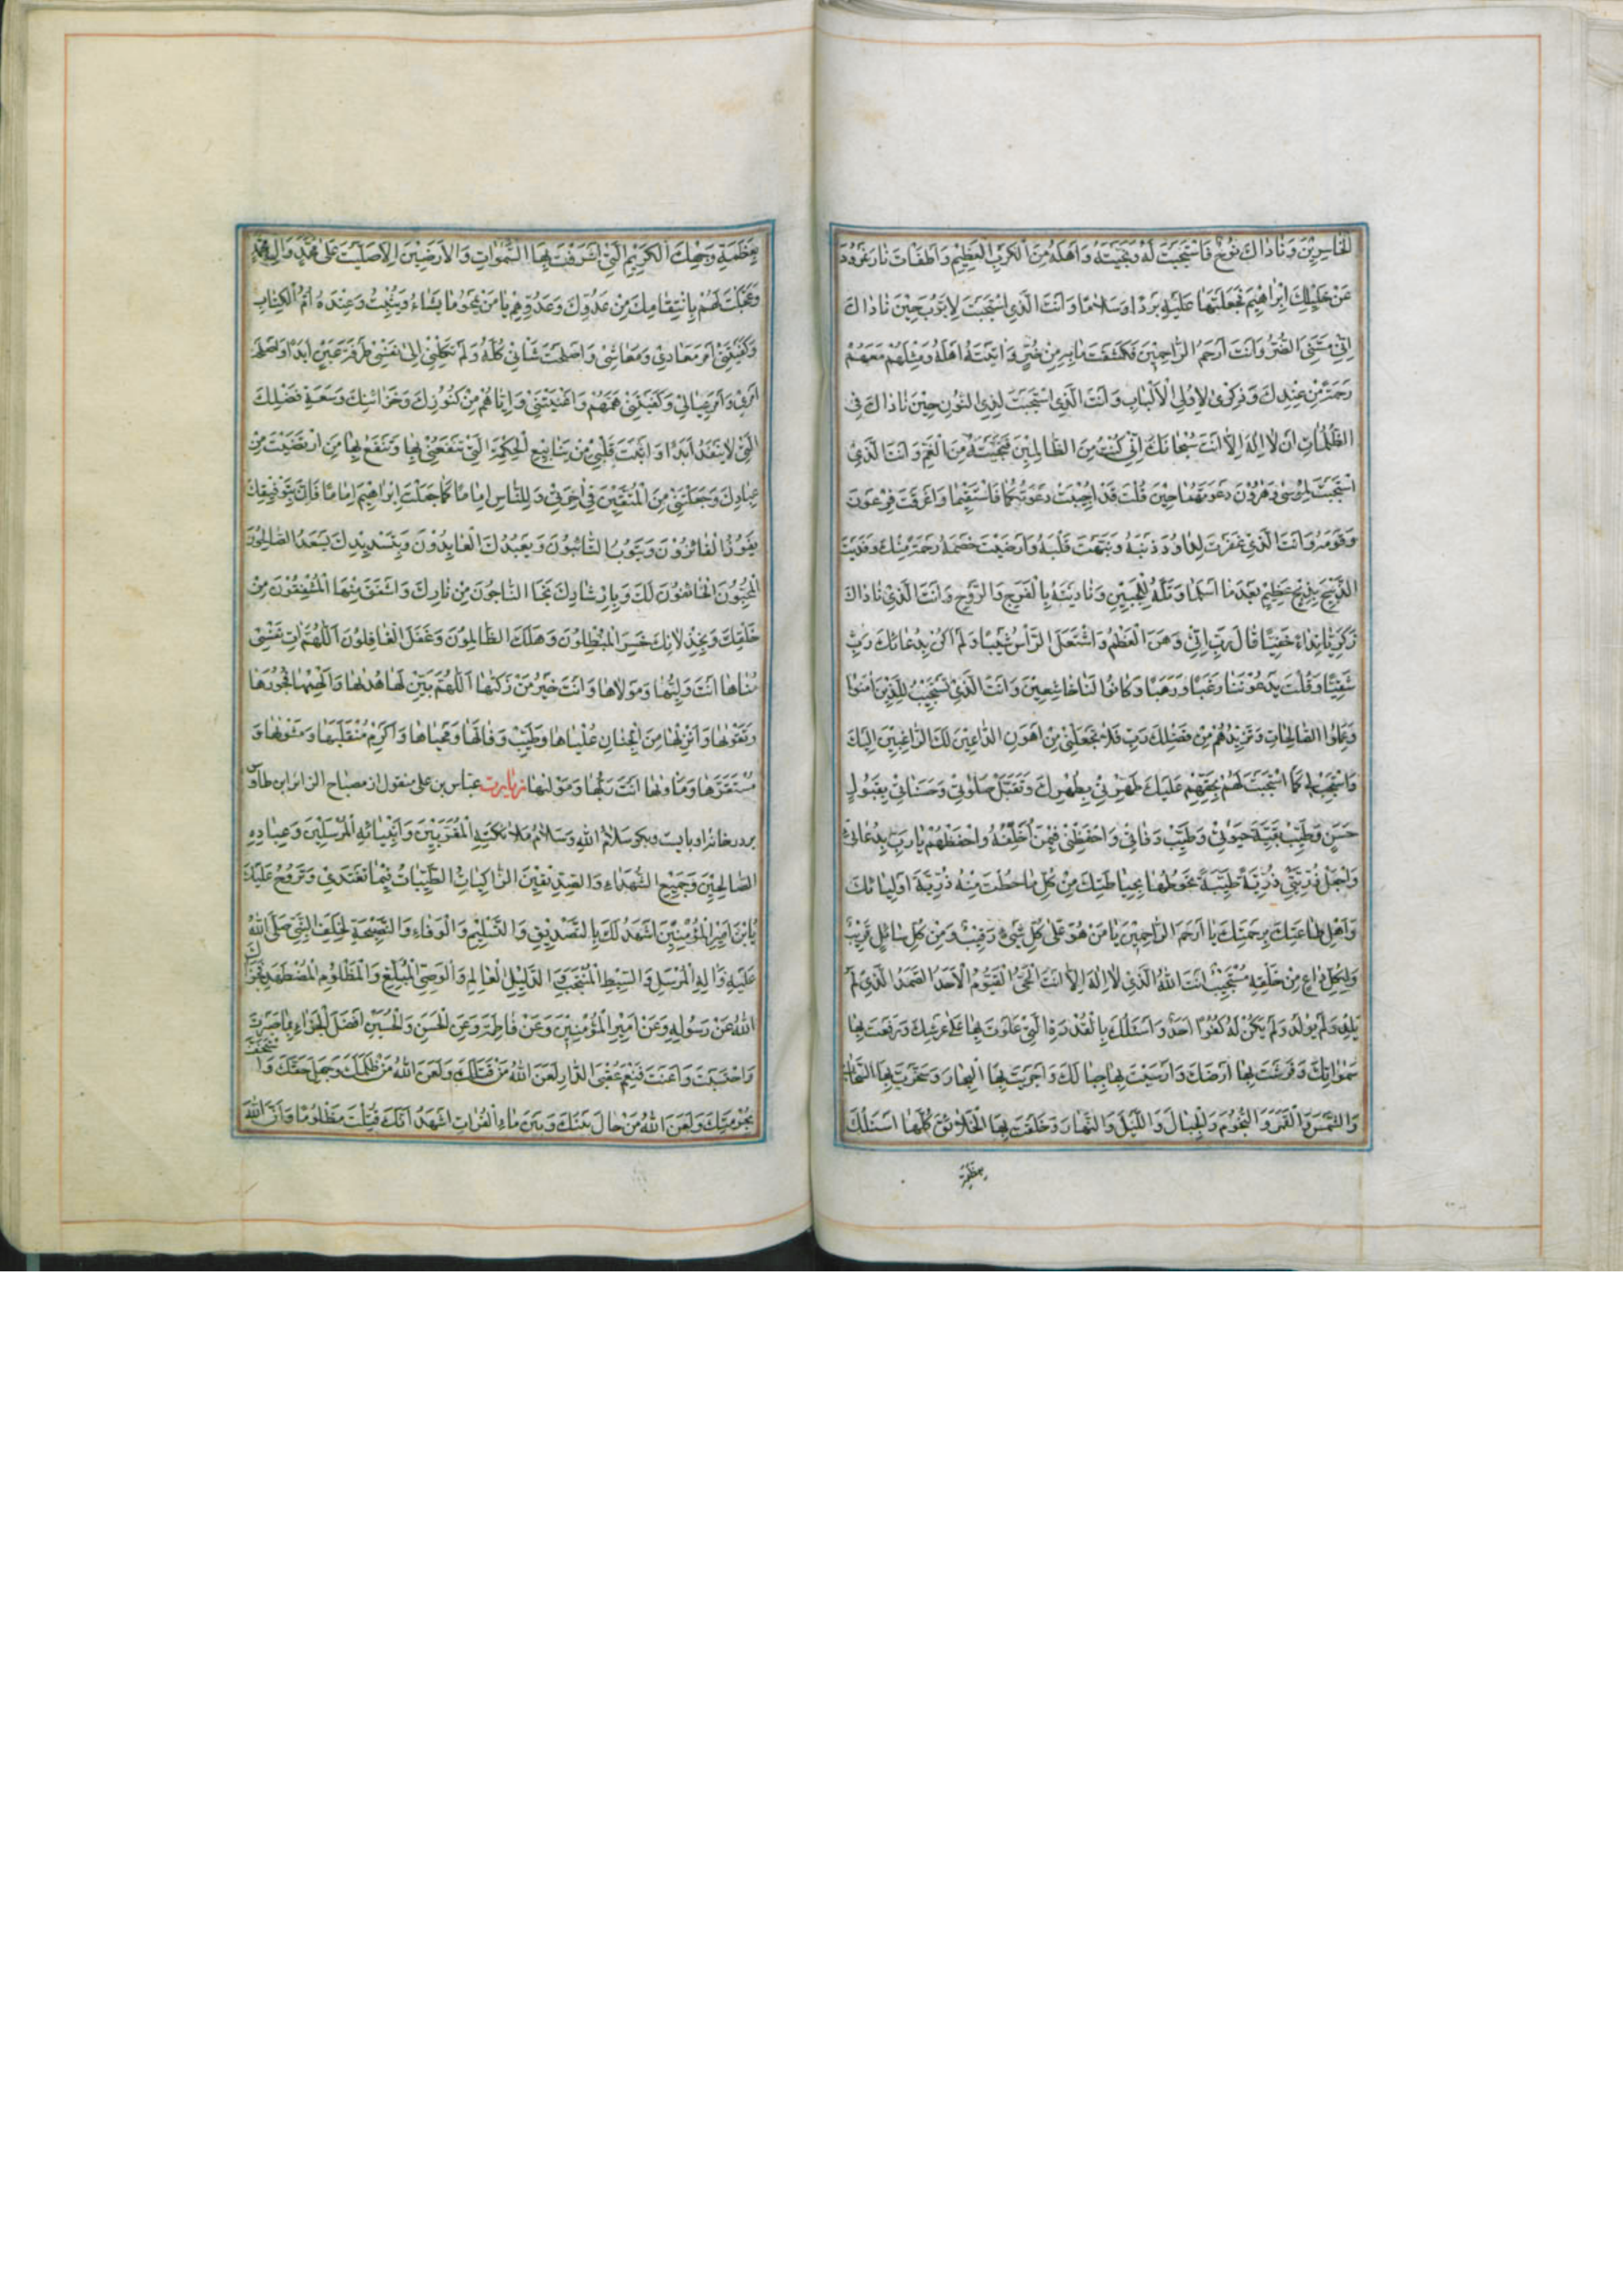 الْخاسِرينَ وَناداكَ نُوحٌ فَاسْتَجَبْتَ لَهُ وَنَجَّيْتَهُ وَاَهْلَهُ مِنَ الْكَرْبِ الْعَظيمِ وَاَطْفَاْتَ نارَ نَمْرُودَ
عَنْ خَليلِكَ اِبْراهيمَ فَجَعَلْتَها عَلَيْهِ بَرْدًا وَسَلامًا وَاَنْتَ الَّذي اسْتَجَبْتَ لِاَيُّوبَ حينَ ناداكَ
اَنّي مَسَّنِيَ الضُّرُّ وَاَنْتَ اَرْحَمُ الرّاحِمينَ فَكَشَفْتَ ما بِهِ مِنْ ضُرٍّ وَاتَيْتَهُ اَهْلَهُ وَمِثْلَهُمْ مَعَهُمْ
رَحْمَةً مِنْ عِنْدِكَ وَذِكْرى لِاُولِي الْاَلْبابِ وَاَنْتَ الَّذي اسْتَجَبْتَ لِذِي النُّونِ حينَ ناداكَ في
الظُّلُماتِ اَنْ لا اِلهَ اِلّا اَنْتَ سُبْحانَكَ اِنّي كُنْتُ مِنَ الظّالِمينَ فَنَجَّيْتَهُ مِنَ الْغَمِّ وَاَنْتَ الَّذي
اسْتَجَبْتَ لِمُوسى وَهرُونَ دَعْوَتَهُما حينَ قُلْتَ قَدْ اُجيبَتْ دَعْوَتُكُما فَاسْتَقيما وَاَغْرَقْتَ فِرْعَوْنَ
وَقَوْمَهُ وَاَنْتَ الَّذي غَفَرْتَ لِداوُدَ ذَنْبَهُ وَنَبَّهْتَ قَلْبَهُ وَاَرْضَيْتَ خَصْمَهُ رَحْمَةً مِنْكَ وَفَدَيْتَ
الذَّبيحَ بِذِبْحٍ عَظيمٍ بَعْدَ ما اَسْلَما وَتَلَّهُ لِلْجَبينِ وَنادَيْتَهُ بِالْفَرَجِ وَالرَّوْحِ وَاَنْتَ الَّذي ناداكَ
زَكَرِيّا نِداءً خَفِيًّا قالَ رَبِّ اِنّي وَهَنَ الْعَظْمُ وَاشْتَعَلَ الرَّاْسُ شَيْبًا وَلَمْ اَكُنْ بِدُعائِكَ رَبِّ
شَقِيًّا وَقُلْتَ يَدْعُونَنا رَغَبًا وَرَهَبًا وَكانُوا لَنا خاشِعينَ وَاَنْتَ الَّذي تَسْتَجيبُ لِلَّذينَ امَنُوا
وَعَمِلُوا الصّالِحاتِ وَتَزيدُهُمْ مِنْ فَضْلِكَ رَبِّ فَلا تَجْعَلْني مِنْ اَهْوَنِ الدّاعينَ لَكَ الرّاغِبينَ اِلَيْكَ
وَاسْتَجِبْ لي كَمَا اسْتَجَبْتَ لَهُمْ بِحَقِّهِمْ عَلَيْكَ طَهِّرْني بِطُهْرِكَ وَتَقَبَّلْ صَلوتي وَحَسَناتي بِقَبُولٍ
حَسَنٍ وَطَيِّبْ بَقِيَّةَ حَيوتي وَطَيِّبْ وَفاتي وَاحْفَظْني فيمَنْ اُخَلِّفُهُ وَاحْفَظْهُمْ يا رَبِّ بِدُعائي
وَاجْعَلْ ذُرِّيَّتي ذُرِّيَّةً طَيِّبَةً تَحُوطُها بِحِياطَتِكَ مِنْ كُلِّ ما حُطْتَ مِنْهُ ذُرِّيَّةَ اَوْلِيائِكَ
وَاَهْلِ طاعَتِكَ بِرَحْمَتِكَ يا اَرْحَمَ الرّاحِمينَ يا مَنْ هُوَ عَلى كُلِّ شَيْءٍ رَقيبٌ وَمِنْ كُلِّ سائِلٍ قَريبٌ
وَلِكُلِّ داعٍ مِنْ خَلْقِهِ مُجيبٌ اَنْتَ اللهُ الَّذي لا اِلهَ اِلّا اَنْتَ الْحَيُّ الْقَيُّومُ الْاَحَدُ الصَّمَدُ الَّذي لَمْ
يَلِدْ وَلَمْ يُولَدْ وَلَمْ يَكُنْ لَهُ كُفُوًا اَحَدٌ وَاَسْئَلُكَ بِالْقُدْرَةِ الَّتي عَلَوْتَ بِها عَلى عَرْشِكَ وَرَفَعْتَ بِها
سَمواتِكَ وَفَرَشْتَ بِها اَرْضَكَ وَاَرْسَيْتَ بِها جِبالَكَ وَاَجْرَيْتَ بِهَا الْبِحارَ وَسَخَّرْتَ بِهَا السَّحابَ
وَالشَّمْسَ وَالْقَمَرَ وَالنُّجُومَ وَالْجِبالَ وَاللَّيْلَ وَالنَّهارَ وَخَلَقْتَ بِهَا الْخَلائِقَ كُلَّها اَسْئَلُكَ
بِعَظَمَةِ
بِعَظَمَةِ وَجْهِكَ الْكَريمِ الَّتي اَشْرَقَتْ بِهَا السَّمواتُ وَالْاَرَضينَ اِلّا صَلَّيْتَ عَلى مُحَمَّدٍ وَالِ مُحَمَّدٍ
وَعَجَّلْتَ لَهُمْ بِانْتِقامِكَ مِنْ عَدُوِّكَ وَعَدُوِّهِمْ يا مَنْ يَمْحُو ما يَشاءُ وَيُثْبِتُ وَعِنْدَهُ اُمُّ الْكِتابِ
وَكَفَيْتَني اَمْرَ مَعادي وَمَعاشي وَاَصْلَحْتَ شَاْني كُلَّهُ وَلَمْ تَكِلْني اِلى نَفْسي طَرْفَةَ عَيْنٍ اَبَدًا وَاَصْلَحْتَ
اَمْري وَاَمْرَ عِيالي وَكَفَيْتَني هَمَّهُمْ وَاَغْنَيْتَني وَاِيّاهُمْ مِنْ كُنُوزِكَ وَخَزائِنِكَ وَسَعَةِ فَضْلِكَ
الَّتي لا يَنْفَدُ اَبَدًا وَاَثْبَتَّ قَلْبي مِنْ يَنابيعِ الْحِكْمَةِ الَّتي تَنْفَعُني بِها وَتَنْفَعُ بِها مَنِ ارْتَضَيْتَ مِنْ
عِبادِكَ وَجَعَلْتَني مِنَ الْمُتَّقينَ في اخِرَتي وَلِلنّاسِ اِمامًا كَما جَعَلْتَ اِبْراهيمَ اِمامًا فَاِنَّ بِتَوْفيقِكَ
يَفُوزُ الْفائِزُونَ وَيَتُوبُ التّائِبُونَ وَيَعْبُدُكَ الْعابِدُونَ وَبِتَسْديدِكَ يَسْعَدُ الصّالِحُونَ
الْمُخْبِتُونَ الْخاشِعُونَ لَكَ وَبِاِرْشادِكَ نَجَا النّاجُونَ مِنْ نارِكَ وَاَشْفَقَ مِنْهَا الْمُشْفِقُونَ مِنْ
خَلْقِكَ وَبِخِذْلانِكَ خَسِرَ الْمُبْطِلُونَ وَهَلَكَ الظّالِمُونَ وَغَفَلَ الْغافِلُونَ اَللّهُمَّ اتِ نَفْسي
مُناها اَنْتَ وَلِيُّها وَمَوْلاها وَاَنْتَ خَيْرُ مَنْ زَكّيها اَللّهُمَّ بَيِّنْ لَها هُديها وَاَلْهِمْها فُجُورَها
وَتَقْويها وَاَنْزِلْها مِنَ الْجِنانِ عُلْياها وَطَيِّبْ وَفاتَها وَمَحْياها وَاَكْرِمْ مُنْقَلَبَها وَمَثْويها وَ
مُسْتَقَرَّها وَمَاْويها اَنْتَ رَبُّها وَمَوْليها زيارت عبّاس بن على منقول از مصباح الزائر ابن طاوس
بر در خانهٔ او بايست وبكو سَلامُ اللهِ وَسَلامُ مَلائِكَتِهِ الْمُقَرَّبينَ وَاَنْبِيائِهِ الْمُرْسَلينَ وَعِبادِهِ
الصّالِحينَ وَجَميعِ الشُّهَداءِ وَالصِّدّيقينَ الزّاكِياتُ الطَّيِّباتُ فيما تَغْتَدي وَتَرُوحُ عَلَيْكَ
يَا بْنَ اَميرِ الْمُؤْمِنينَ اَشْهَدُ لَكَ بِالتَّصْديقِ وَالتَّسْليمِ وَالْوَفاءِ وَالنَّصيحَةِ لِخَلَفِ النَّبِيِّ صَلَّى اللهُ
عَلَيْهِ وَالِهِ الْمُرْسَلِ وَالسِّبْطِ الْمُنْتَجَبِ وَالدَّليلِ الْعالِمِ وَالْوَصِيِّ الْمُبَلِّغِ وَالْمَظْلُومِ الْمُضْطَهَدِ فَجَزاكَ
اللهُ عَنْ رَسُولِهِ وَعَنْ اَميرِ الْمُؤْمِنينَ وَعَنْ فاطِمَةَ وَعَنِ الْحَسَنِ وَالْحُسَيْنِ اَفْضَلَ الْجَزاءِ بِما صَبَرْتَ
وَاحْتَسَبْتَ وَاَعَنْتَ فَنِعْمَ عُقْبَى الدّارِ لَعَنَ اللهُ مَنْ قَتَلَكَ وَلَعَنَ اللهُ مَنْ ظَلَمَكَ وَجَهِلَ حَقَّكَ وَاسْتَخَفَّ
بِحُرْمَتِكَ وَلَعَنَ اللهُ مَنْ حالَ بَيْنَكَ وَبَيْنَ ماءِ الْفُراتِ اَشْهَدُ اَنَّكَ قُتِلْتَ مَظْلُومًا وَاَنَّ اللهَ